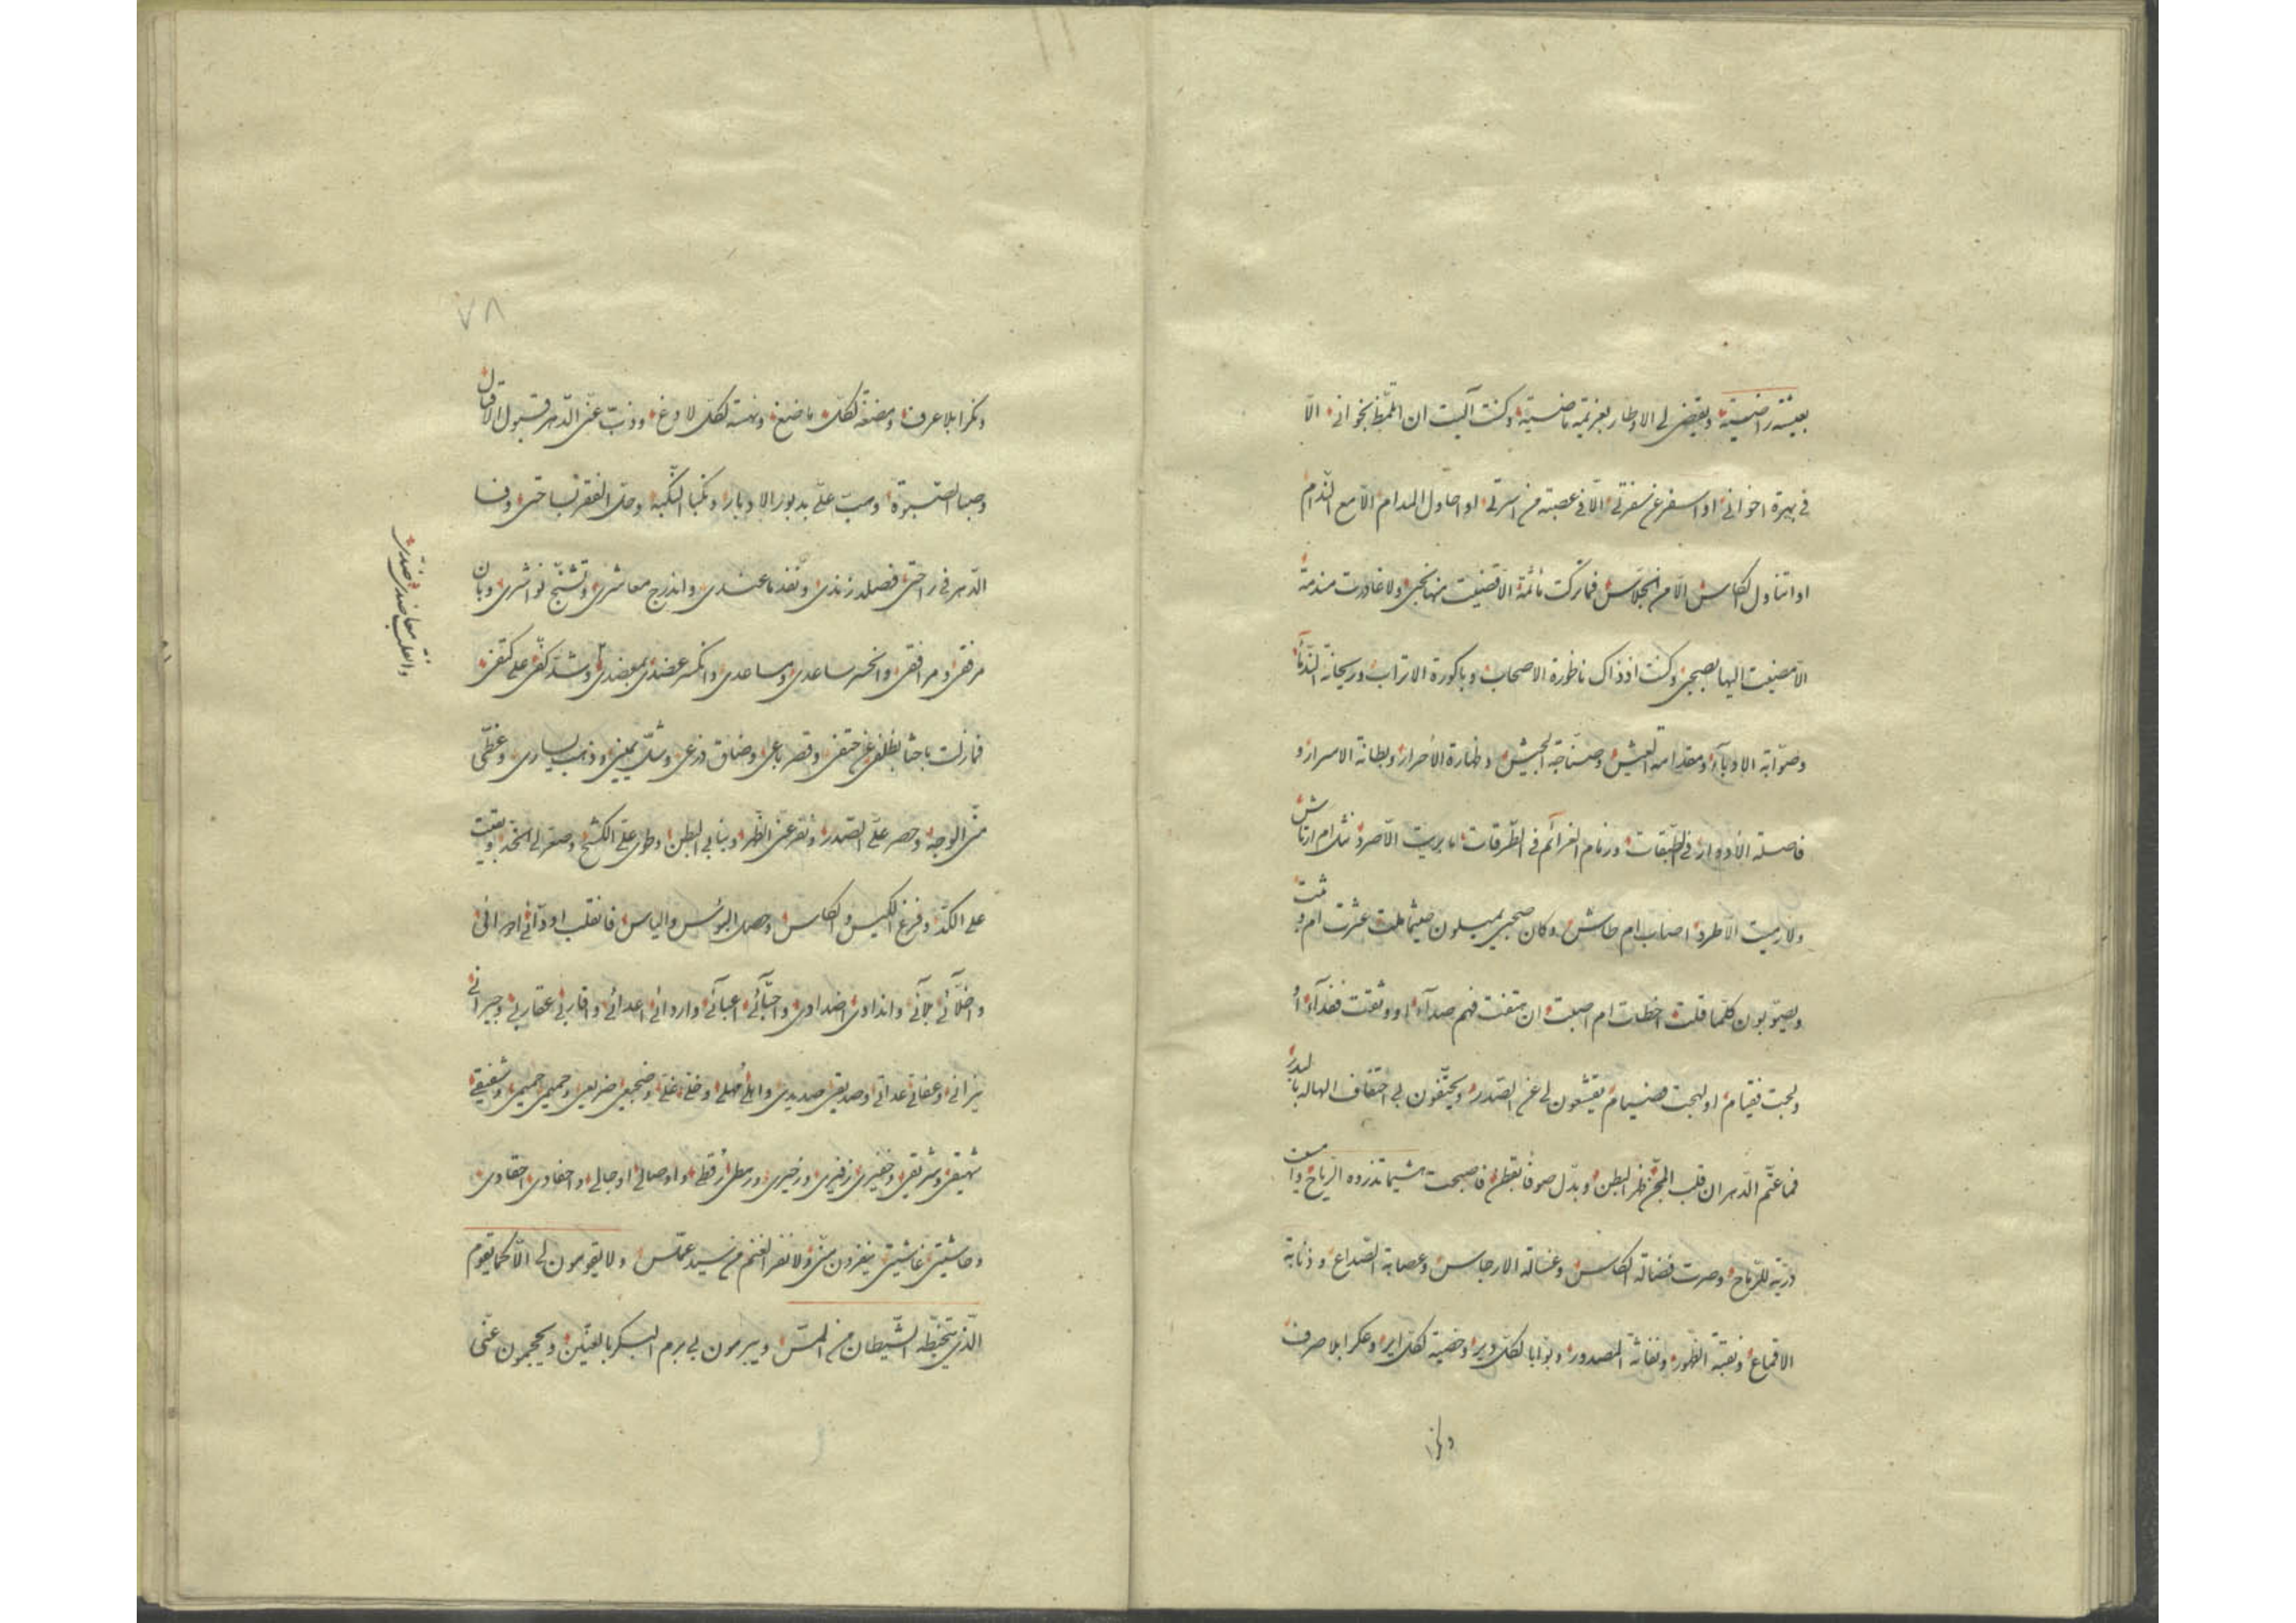 بعيشة راضية ويقيض لى الاوطار بعزيمة ماضية وكنت آليت ان لا اتلمظ بخوانى الّا
فى بهرة اخوانى او اسفر عن سفرتى الّا فى عصبة من اسرتى او احاول المدام الّا مع الندام
او اتناول الكاس الّا من الجلّاس فما تركت مأثمة الّا قضيت منها نحبى ولا غادرت مندمة
الّا مضيت اليها بصحبى وكنت اذ ذاك ناظورة الاصحاب وباكورة الاتراب وريحانة الندماء
وصوّابة الادباء ومقدامة العيش وصنّاجة الجيش وظهارة الأحرار وبطانة الاسرار و
فاصلة الأدوار فى الطبقات وزمام العزائم فى الطرقات ما بريت الّا صرد نشك ام ارتاش
ولا رميت الّا طرد اصاب ام طاش وكان صحبى يميلون حيثما ملت عثرت ام
ويصوّبون كلّما قلت اخطات ام اصبت ان هتفت فهم صدآء او وثقت ففدآء او
ولجت فقيام او لهجت فصيام يقشعون لى عن الصدر ويحتفّون بى احتفاف الهاله بالبدر
فما عتّم الدهر ان قلب المجنّ ظهر البطن وبدّل صوفا بقطن فاصبحت هشيما تذروه الرياح
دريّة للرماح وصرت فضالة الكاس وغسالة الارجاس وعصابة الصداع وذنابة
الاقماع ونقبة الظهور ونفاثة المصدور وبوّابا لكل دير وخصية لكل اير وعكرا بلا صرف
ونكرا بلا عرف ومضغة لكلّ ماضغ ونهسة لكل لادغ وذبّ عنّى الدهر قبول الاقبال
وصبا الصبوة وهبّ علىّ بدبور الادبار ونكبا النكبة وحلّ الفقر بساحتى وفسا
الدهر فى راحتى فصلد زندى ونفد ما عندى واندرج معاشرى وتشنّج نواشرى وبان
مرفقى ومرافقى وانخسر ساعدى ومساعدى وانكسر عضدى بمعضدى وشدّ كفى على كتفى
وانقلب صدر ضدى
فما زلت باحثا بظلفى عن حتفى وقصر باعى وضاق ذرعى وشلّ يمينى وذهب يسارى وغطّى
منّى الوجه وحصر علىّ الصدر ونفر عنّى الظهر ونبا بى البطن وطوى علىّ الكشح وصعر لى الخد وبقيت
على الكدّ وفرغ الكيس والكاس وحصل البؤس والياس فانقلب اودّائى
واخلّائى بلائى واندادى اضدادى واحبّائى اعبائى اعدائى واقاربى عقاربى وجيرانى
نيرانى وعفاتى عداتى وصديقى صديدى واهلى مهلى وخلّى غلّى وضجيعى ضريعى وحميمى حميمى وشفيقى
شهيقى وشريقى وخفيرى زفيرى ورهطى رقطى واوصالى اوجالى واحفادى احقادى
وحاشيتى غاشيتى ينفرون منى ولا نفر الغنم من سيد عملّس ولا يقومون لى الّا كما يقوم
الّذى يتخبّطه الشيطان من المسّ ويبرمون بى برم السكر بالعنّين ويحجمون عنّى